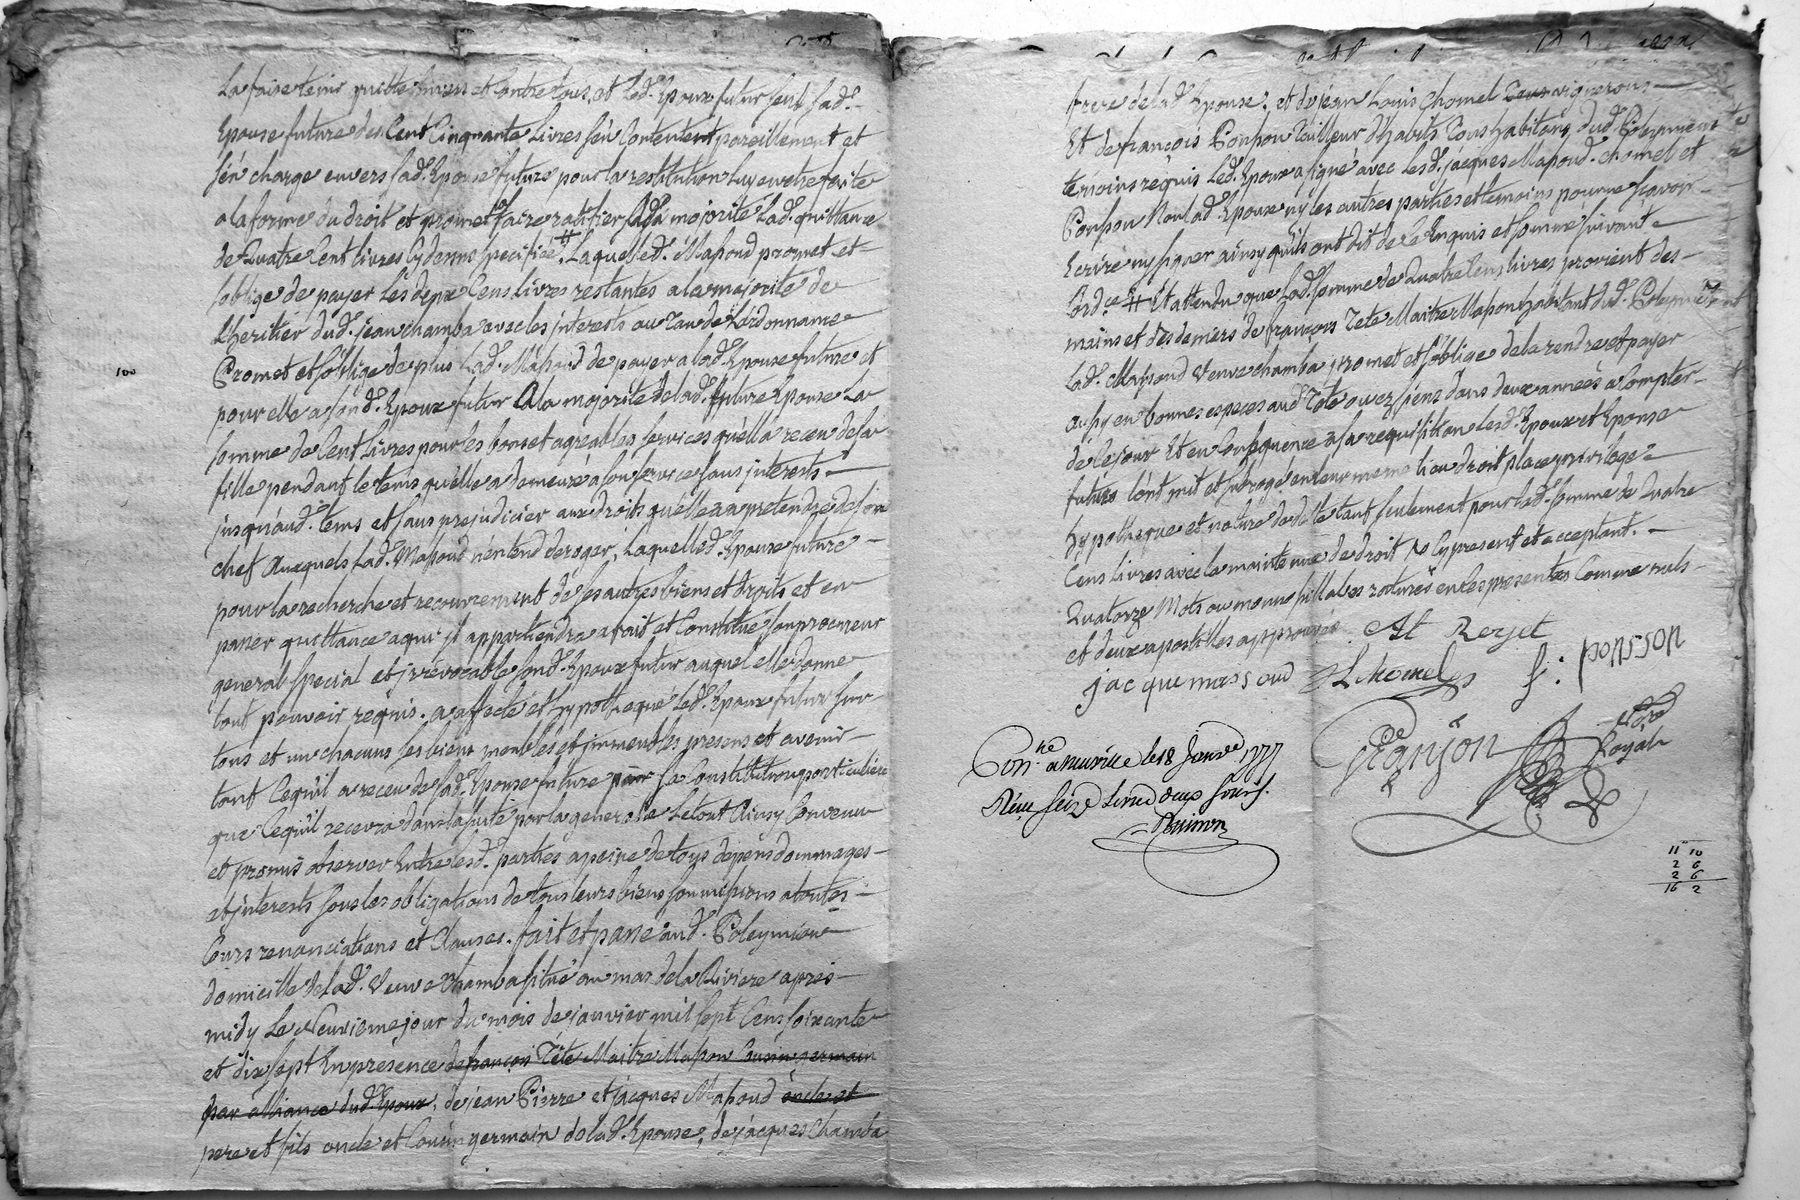 La faire tenir quitte Envers et Contre tous, et Led. Epoux futur seul sad.
Epouse future des Cent Cinquante Livres s'en Contentent pareillement et
s'en charge envers sad. Epouse future pour la restitution luy en etre faite
a la forme du droit et promet faire ratifier sa majorité Lad. quittance
de Quatre Cent livres cy dessus specifiée # Laquelled. Massoud promet et
s'oblige de payer les deux Cens livres restantes a la majorité de
L'heritier dud. jean chamba avec les interests au Taux de L'ordonnance
Promet et s'oblige de plus Lad. Massoud de payer a lad. Epouse future et
100
pour elle a sond. Epoux futur A la majorité de lad. future Epouse La
somme de Cent Livres pour les bons et agreables services qu'ella a receu de la
fille pendant le tems qu'elle a demeuré a son service sans interests
jusqu'aud. tems et sans prejudicier aux droits qu'elle a a pretendre de son
chef Auxquels Lad. Massoud n'entend deroger, Laquelled. Epouse future
pour la recherche et recouvrement de ses autres biens et droits et en
passer quittance a qui il appartiendra a fait et Constitué son procureur
general special et irrévocable sond. Epoux futur auquel elle donne
tout pouvoir requis. a affecté et hypothequé Led. Epoux futur sur
tous et un chacuns ses biens meubles et immeubles presens et avenir
tant Cequ'il a receu de sad. Epouse future par sa Constitution particuliere
que Cequ'il recevra dans la suite par la generale Le tout Ainsy Convenu
et promis observer Entre lesd. parties a peine de tous depens dommages
et interests sous les obligations de tous leurs biens soumissions a toutes
Cours renonciations et Clauses. fait et passé aud. Poleymieux
domicille de Lad. Veuve Chamba situé au mas de la Riviere apres
midy Le Neuvieme jour du mois de janvier mil sept Cens soixante
et dix sept En présence de françois Tête Maitre Masson Cousin germain
par alliance dud. Epoux, de jean Pierre et jacques Massoud oncle et
pere et fils oncle et Cousin germain de lad. Epouse, de jacques Chamba
frere de lad. Epouse, et de jean Louis Chomel Tous vignerons
Et de françois Ponson Tailleur d'habits Tous habitans dud. Poleymieux
temoins requis Led. Epoux a signé avec Lesd. jacques Massoud, chomel et
Ponson Non lad. Epouse ny les autres parties et temoins pour ne sçavoir
Ecrire ny signer ainsy qu'ils ont dit de Ce Enquis et sommé suivant
L'ord.ce # Et attendu que Lad. somme de Quatre Cens livres provient des
mains et des deniers de françois Tete Maitre Masson habitant dud. Poleymieux
Lad. Massoud Veuve chamba promet et s'oblige de la rendre et payer
en bonnes especes aud. Tête ou ez siens dans deux années a Compter
de Ce jour Et en Consequence a sa requisition Lesd. Epoux et Epouse
futurs l'ont mit et subrogé en leur meme lieu droit place privilege
hypotheque et nature de dette tant seulement pour lad. somme de Quatre
Cens livres avec la maintenue de droit Cy present et acceptant.
Quatorze Mots ou moins sillabes raturés en les presentes Comme nuls
et deux apostilles approuvés. At Rerjet
jacque massoud JL Chomel f: ponsson
Granjon Nore Royal
Con.lé a neuville le 18 Janv. 1777
Reçu seize livres deux sous.
11 10
2 6
2 6
16 2